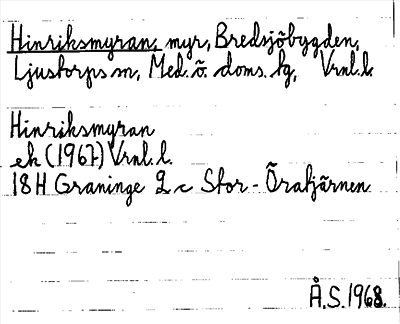 Hinriksmyran, myr, Bredsjöbygden,
Ljustorps sn, Med. ö. doms. hg, Vrnl. l.
Hinriksmyran
ek (1967) Vrnl. l.
18H Graninge 2 c Stor-Öratjärnen
Å.S. 1968.